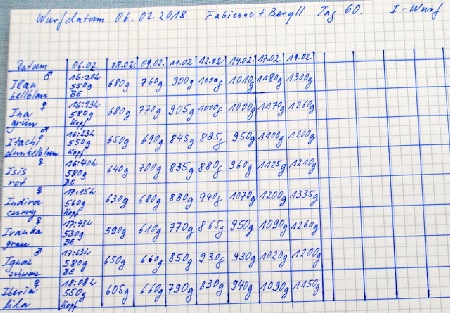 Wurfdatum 06.02.2018 Fabienne + Beryll Tag 60. I-Wurf
Datum 06.02. 08.02. 09.02. 11.02. 12.02. 14.02. 17.02. 19.02.
♂ 16:20h
Ilan 550g 680g 760g 900g 1000g 1010g 1080g 1300g
hellblau BE
♀ 16:23h
Ina 580g 680g 770g 905g 1000g 1070g 1170g 1260g
grün Kopf
♂ 16:23h
Itachi 550g 650g 690g 845g 895g 950g 1100g 1200g
dunkelblau Kopf
♀ 16:40h
Isis 580g 640g 700g 835g 880g 960g 1125g 1210g
rot BE
♀ 17:15h
Indira 560g 630g 680g 830g 940g 1070g 1200g 1335g
Kopf
♀ 17:43h
Ivanka 530g 590g 610g 770g 865g 950g 1090g 1260g
grau BE
♂ 17:53h
580g 650g 660g 850g 930g 930g 1020g 1200g
BE
♀ 18:08h
Iberia 550g 605g 660g 730g 830g 940g 1030g 1150g
lila Kopf